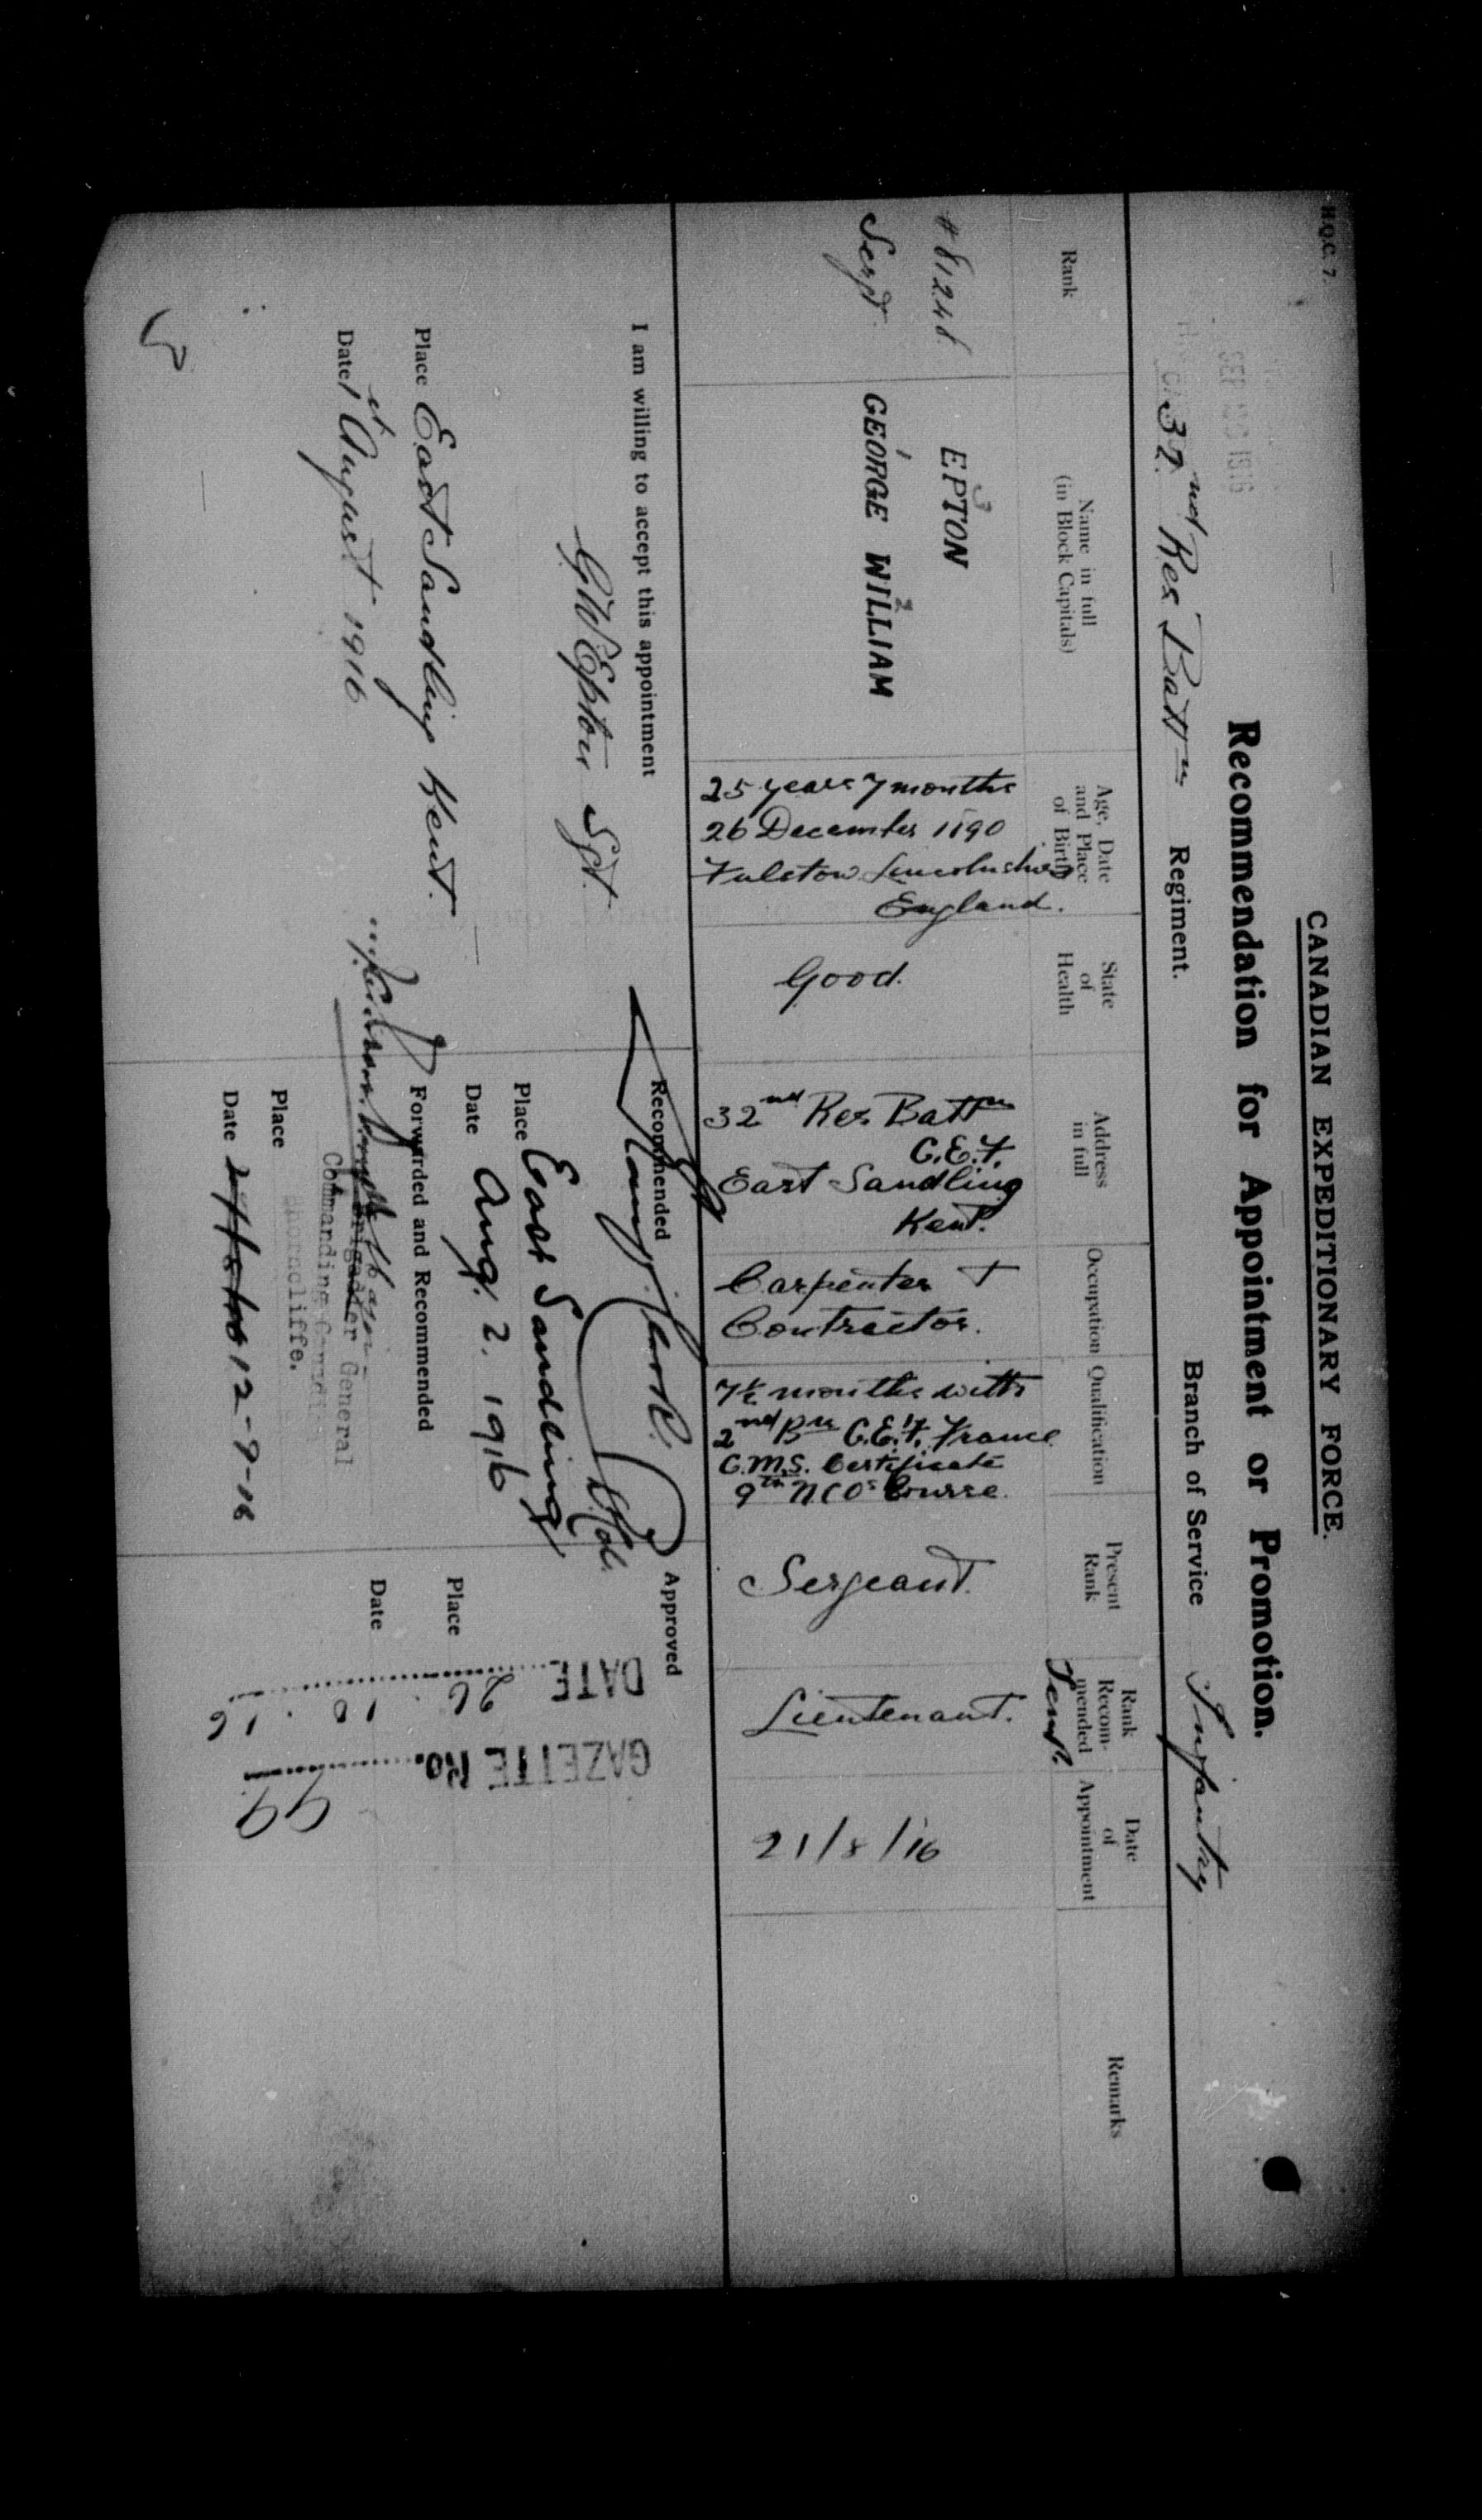 H.Q.C. 7.
CANADIAN EXPEDITIONARY FORCE.
Recommendation for Appointment or Promotion.
SEP 1916
32nd Res Battn Regiment. Branch of Service Infantry
Rank
Name in full
(in Block Capitals)
Age, Date
and Place
of Birth
State
of
Health
Address
in full
Occupation
Qualification
Present
Rank
Rank
Recom-
mended
Temp.
Date
of
Appointment
Remarks
Sergt.
3
EPTON
1 2
GEORGE WILLIAM
25 years 7 months
26 December 1890
Fulstow Lincolnshire
England.
Good.
32nd Res Battn
C.E.F.
East Sandling
Kent.
Carpenter +
Contractor.
7½ months with
2nd Bn C.E.F. France
C.M.S. Certificate
9th NCOs Course.
Sergeant.
Lieutenant.
21/8/16
I am willing to accept this appointment
G W Epton Sgt.
Place East Sandling Kent.
Date 1st August 1916
Recommended
Place East Sandling
Date Aug. 2. 1916
Forwarded and Recommended
Brigadier General
Commanding
Shorncliffe.
Place
Date 12-9-16
Approved
Place
Date
DATE 26 10 . 16
GAZETTE No. 99